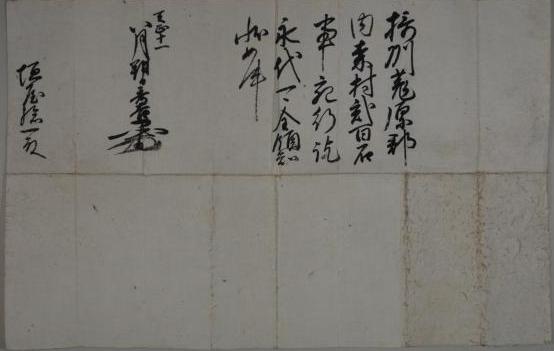 摂州菟原郡
内村弐百石
事宛行訖
永代可全領知
状如件
天正十一
八月朔日 秀吉
垣屋一殿